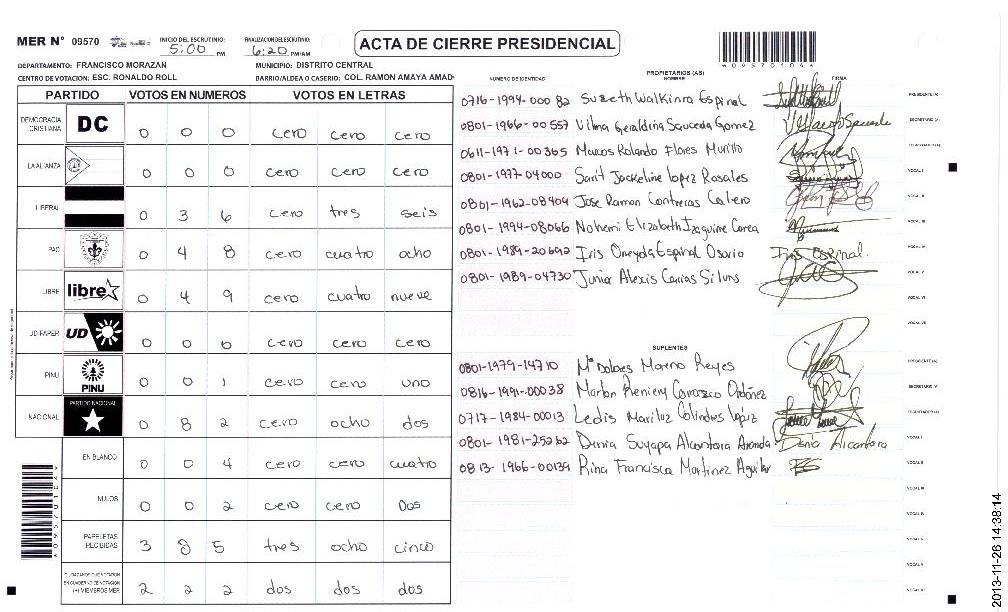 MER N° 09570 INICIO DEL ESCRUTINIO: 5:00 PM FINALIZACION DEL ESCRUTINIO: 6:20 PM/AM ACTA DE CIERRE PRESIDENCIAL
*095701046*
DEPARTAMENTO: FRANCISCO MORAZAN MUNICIPIO: DISTRITO CENTRAL
CENTRO DE VOTACION: ESC. RONALDO ROLL BARRIO/ALDEA O CASERIO: COL. RAMON AMAYA AMAD
PARTIDO VOTOS EN NUMEROS VOTOS EN LETRAS
DEMOCRACIA CRISTIANA DC 0 0 0 cero cero cero
LA ALIANZA 0 0 0 cero cero cero
LIBERAL 0 3 6 cero tres seis
PAC 0 4 8 cero cuatro ocho
LIBRE libre 0 4 9 cero cuatro nueve
UD-FAPER UD 0 0 0 cero cero cero
PINU PINU 0 0 1 cero cero uno
NACIONAL PARTIDO NACIONAL 0 8 2 cero ocho dos
EN BLANCO 0 0 4 cero cero cuatro
NULOS 0 0 2 cero cero Dos
PAPELETAS RECIBIDAS 3 8 5 tres ocho cinco
CIUDADANOS QUE VOTARON
EN CUADERNO DE VOTACION
(+) MIEMBROS MER 2 2 2 dos dos dos
PROPIETARIOS (AS)
NUMERO DE IDENTIDAD NOMBRE FIRMA
0716-1994-000 82 Suzeth Walkinra Espinal PRESIDENTE (A)
0801-1966-00557 Vilma Geraldina Sauceda Gomez SECRETARIO (A)
0611-1971-00365 Marcos Rolando Flores Murillo
0801-1977-04000 Sarit Jackeline Lopez Rosales VOCAL I
0801-1962-08404 Jose Ramon Contreras Calero VOCAL II
0801-1994-08066 Nohemi Elizabeth Izaguirre Corea VOCAL III
0801-1989-20692 Iris Oneyda Espinal Osorio Iris Espinal. VOCAL IV
0801-1989-04730 Junior Alexis Carias Siluns VOCAL V
VOCAL VI
VOCAL VII
SUPLENTES
0801-1979-14710 Mª Dolores Moreno Reyes PRESIDENTE (A)
0816-1991-00038 Marlon Reniery Carrasco Ordoñez SECRETARIO (A)
0717-1984-00013 Ledis Mariluz Colindres Lopez
0801-1981-25262 Dunia Suyapa Alcantara Aranda Dunia Alcantara VOCAL I
0813-1966-00139 Rina Francisca Martinez Aguilar VOCAL II
VOCAL III
VOCAL IV
VOCAL V
VOCAL VI
2013-11-26 14:38:14